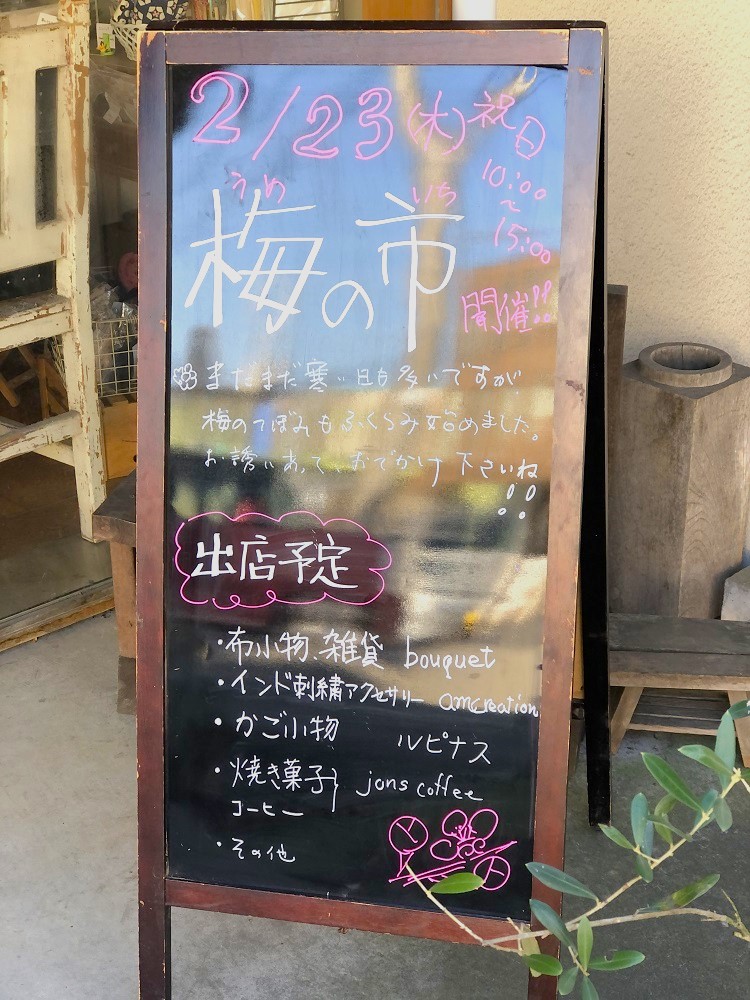 2/23(木)祝日
10:00
~
15:00
うめ いち
梅の市
開催!!
まだまだ寒い日も多いですが
梅のつぼみもふくらみ始めました。
お誘いあっておでかけ下さいね
!!
出店予定
・布小物、雑貨 bouquet
・インド刺繍アクセサリー amcreation
・かご小物 ルピナス
・焼き菓子} jons coffee
コーヒー
・その他